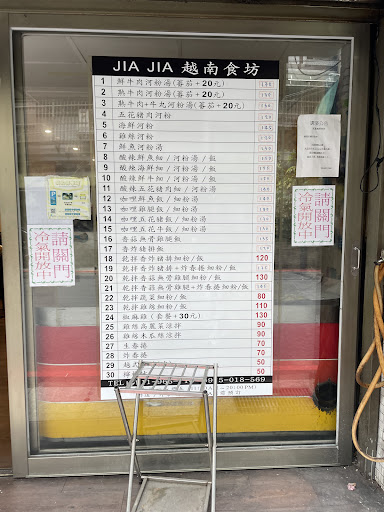 JIA JIA 越南食坊
1 鮮牛肉河粉湯(蕃茄+20元)
2 熟牛肉河粉湯(蕃茄+20元)
3 熟牛肉+牛丸河粉湯(蕃茄+20元)
4 五花豬肉河粉
5 海鮮河粉
6 雞絲河粉
7 鮮魚河粉
8 酸辣鮮魚細/河粉湯/飯
9 酸辣海鮮細/河粉湯/飯
10 酸辣鮮牛細/河粉湯/飯
11 酸辣五花豬肉細/河粉湯
12 咖哩鮮魚飯/細粉湯
13 咖哩雞腿飯/細粉湯
14 咖哩五花豬飯/細粉湯
15 咖哩牛肉飯/細粉湯
16 香菇無骨雞腿飯
17 香炸豬排飯
18 乾拌香炸豬排細粉/飯 120
19 乾拌香炸豬排+炸春捲細粉/飯 130
20 乾拌香菇無骨雞腿細粉/飯 130
21 乾拌香菇無骨雞腿+炸春捲細粉/飯
22 乾拌蔬菜細粉/飯 80
23 乾拌雞絲細粉/飯 110
24 椒麻雞(套餐+30元) 130
25 雞絲高麗菜涼拌 90
26 雞絲木瓜絲涼拌 90
27 生春捲 70
28 炸春捲 70
29 越式 50
30 50
TEL 5-018-569
請關門
冷氣開放中
請關門
冷氣開放中